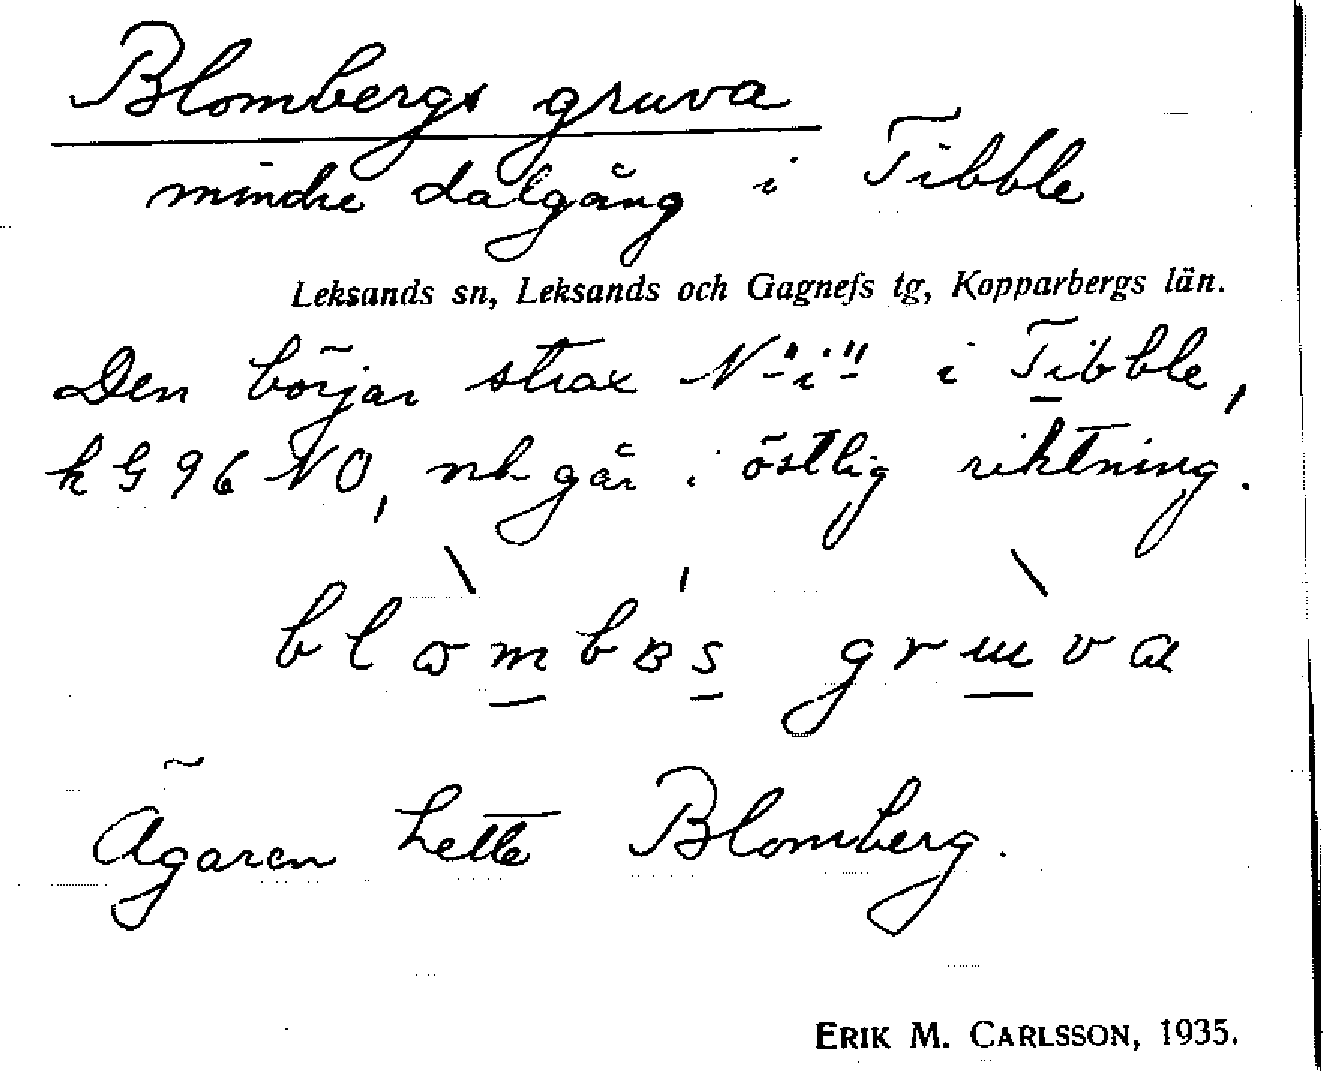 Blombergs gruva
mindre dalgång i Tibble
Leksands sn, Leksands och Gagnefs tg, Kopparbergs län.
Den börjar strax N "i" i Tibble,
k G 96 NO, och går i östlig riktning.
gruva
Ägaren hette Blomberg.
ERIK M. CARLSSON, 1935.